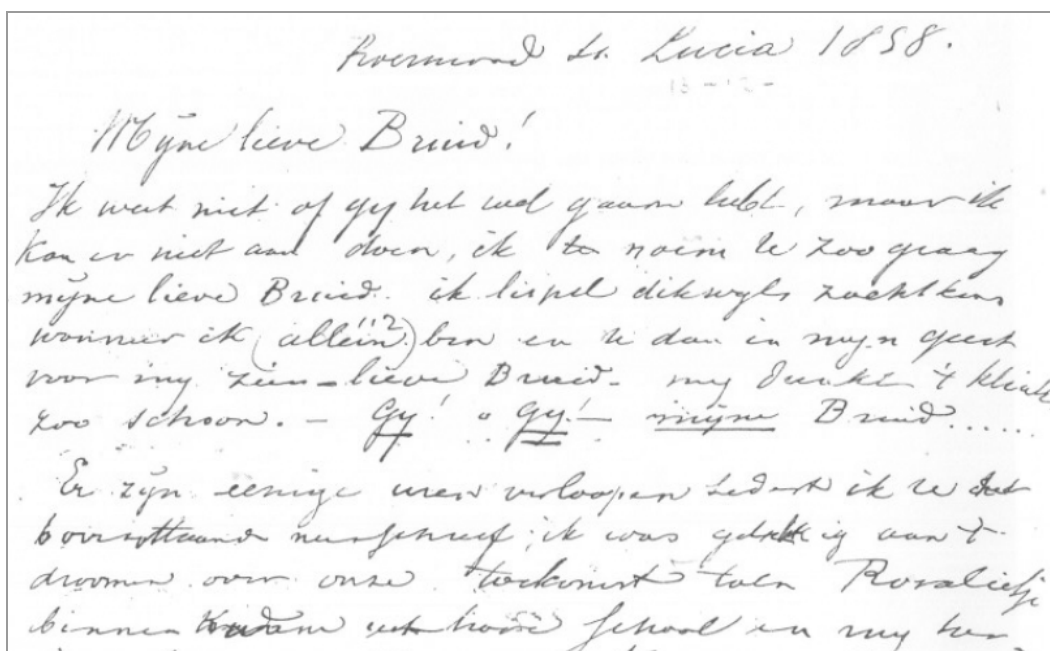 Roermond St. Lucia 1858.
13-12-
Mijne lieve Bruid!
Ik weet niet of gy het wel gaarn hebt, maar ik
kan er niet aan doen, ik noem U zoo graag
mijne lieve Bruid. ik lispel dikwyls zachtkens
wanneer ik (allein) ben en U dan in myn geest
voor my zien - lieve Bruid - my dunkt 't klinkt
zoo schoon. - Gy! o Gy! - mijne Bruid......
Er zijn eenige uren verloopen sedert ik U het
bovenstaand neerschreef; ik was gelukkig aan 't
droomen over onze toekomst toen Rosalietje
binnen kwam school en my